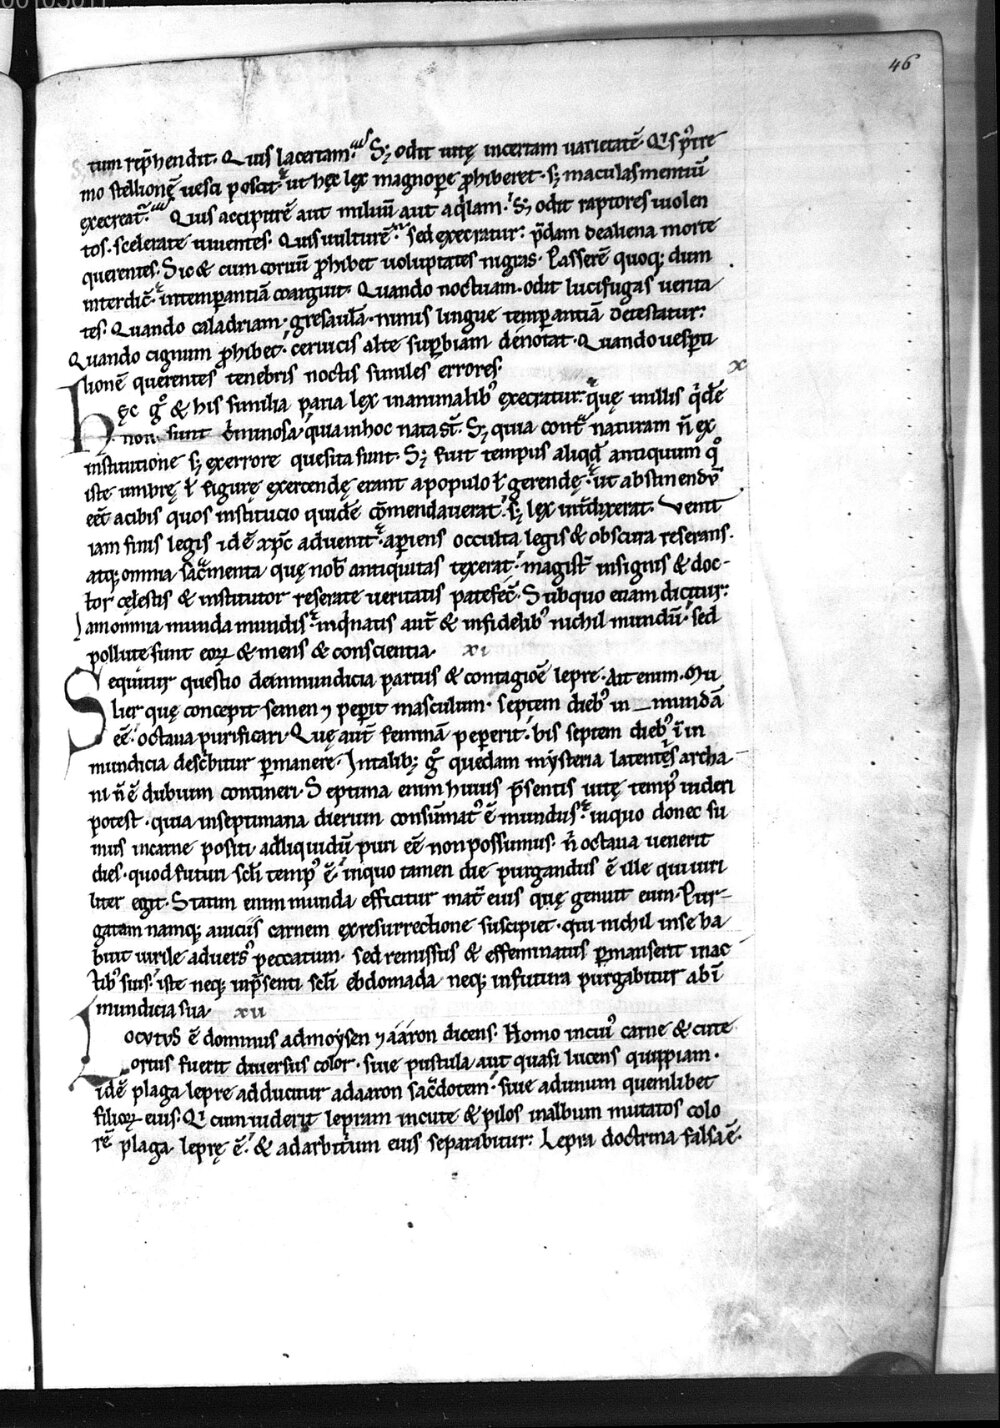 46
tum rep̄hendit. Quis lacertam. Sꝫ odit uitę incertam uarietatē. Qͥs p̄tre
mo stellionē uesci poscit. ut hęc lex magnope ꝓhiberet. sꝫ maculas mentiū
execreat. Quis accipitrē aut miluū aut aqͥlam. Sꝫ odit raptores uiolen
tos. scelerate uiuentes. Quis uulturē. sed execratur: p̄dam de aliena morte
querentes. Sic & cum coruū ꝓhibet uoluptates nigras. Passerē quoqꝫ dum
interdic̄. intemperantiā coarguit. Quando noctuam. odit lucifugas uerita
tes. Quando caladriam. nimis lingue temperantiā detestatur:
Quando cignum ꝓhibet. ceruicis alte supbiam denotat. Quando uesperti
lionē querentes tenebris noctis similes errores.
x
Hęc gͦ & his similia paria lex in animalibꝰ execratur. quę in illis qͥdē
non sunt cͥminosa. quia in hoc nata st̄. Sꝫ quia contͣ naturam n̄ ex
institutione sꝫ ex errore quesita sunt. Sꝫ fuit tempus aliqd̄ antiquum qͦ
iste umbrę ł figurę exercendę erant a populo ł gerendę. ut abstinendū
eēt a cibis quos institucio quidē cōmendauerat. sꝫ lex int̄dixerat. Venit
iam finis legis idē xp̄c aduenit. apiens occulta legis & obscura reserans.
atqꝫ omnia sacͣmenta quę nob̄ antiquitas texerat. magist̄ insignis & doc-
tor cęlestis & institutor reserate ueritatis patefec̄. Sub quo etiam dicitur:
Iam omnia munda mundis. inqͥnatis aut̄ & infidelibꝰ nichil mundū. sed
pollute sunt eoꝝ & mens & conscientia. xi
Sequitur questio de inmundicia partus & contagioē lepre. Ait enim. Mu
lier quę concepit semen ⁊ pepit masculum. septem diebꝰ in mundā
eē. octaua purificari. Quę aut̄ feminā pepererit. bis septem diebꝰ ī in
mundicia descͥbitur pmanere. In talibꝫ gͦ quedam mysteria latentes archa
ni n̄ ē dubium contineri. Septima enim huius p̄sentis uitę tempꝰ uideri
potest. quia in septimana dierum consūmatꝰ ē mundus. in quo donec su
mus in carne positi ad liquidū puri eē non possumus. n̄ octaua uenerit
dies. quod futuri scl̄i tempꝰ ē. in quo tamen die purgandus ē ille qui uiri
liter egit. Statim enim munda efficitur mat̄ eius quę genuit eum. Pur-
gatam namqꝫ a uiciis carnem ex resurrectione suscipiet. qui nichil in se ha
buit uirile aduersꝰ peccatum. sed remissus & effeminatus pmanserit in ac
tibꝰ suis. iste neqꝫ in p̄senti scl̄i ebdomada neqꝫ in futura purgabitur ab ī
mundicia sua. xii
Locutus ē dominus ad moysen ⁊ aaron dicens. Homo in cuiꝰ carne & cute
ortus fuerit diuersus color. siue pustula aut quasi lucens quippiam.
idē plaga lepre adducitur ad aaron sac̄dotem. siue ad unum quemlibet
filioꝝ eius. Qͥ cum uiderit lepram in cute & pilos in album mutatos colo
rē plaga leprę ē. & ad arbitrium eius separabitur: Lepra doctrina falsa ē.